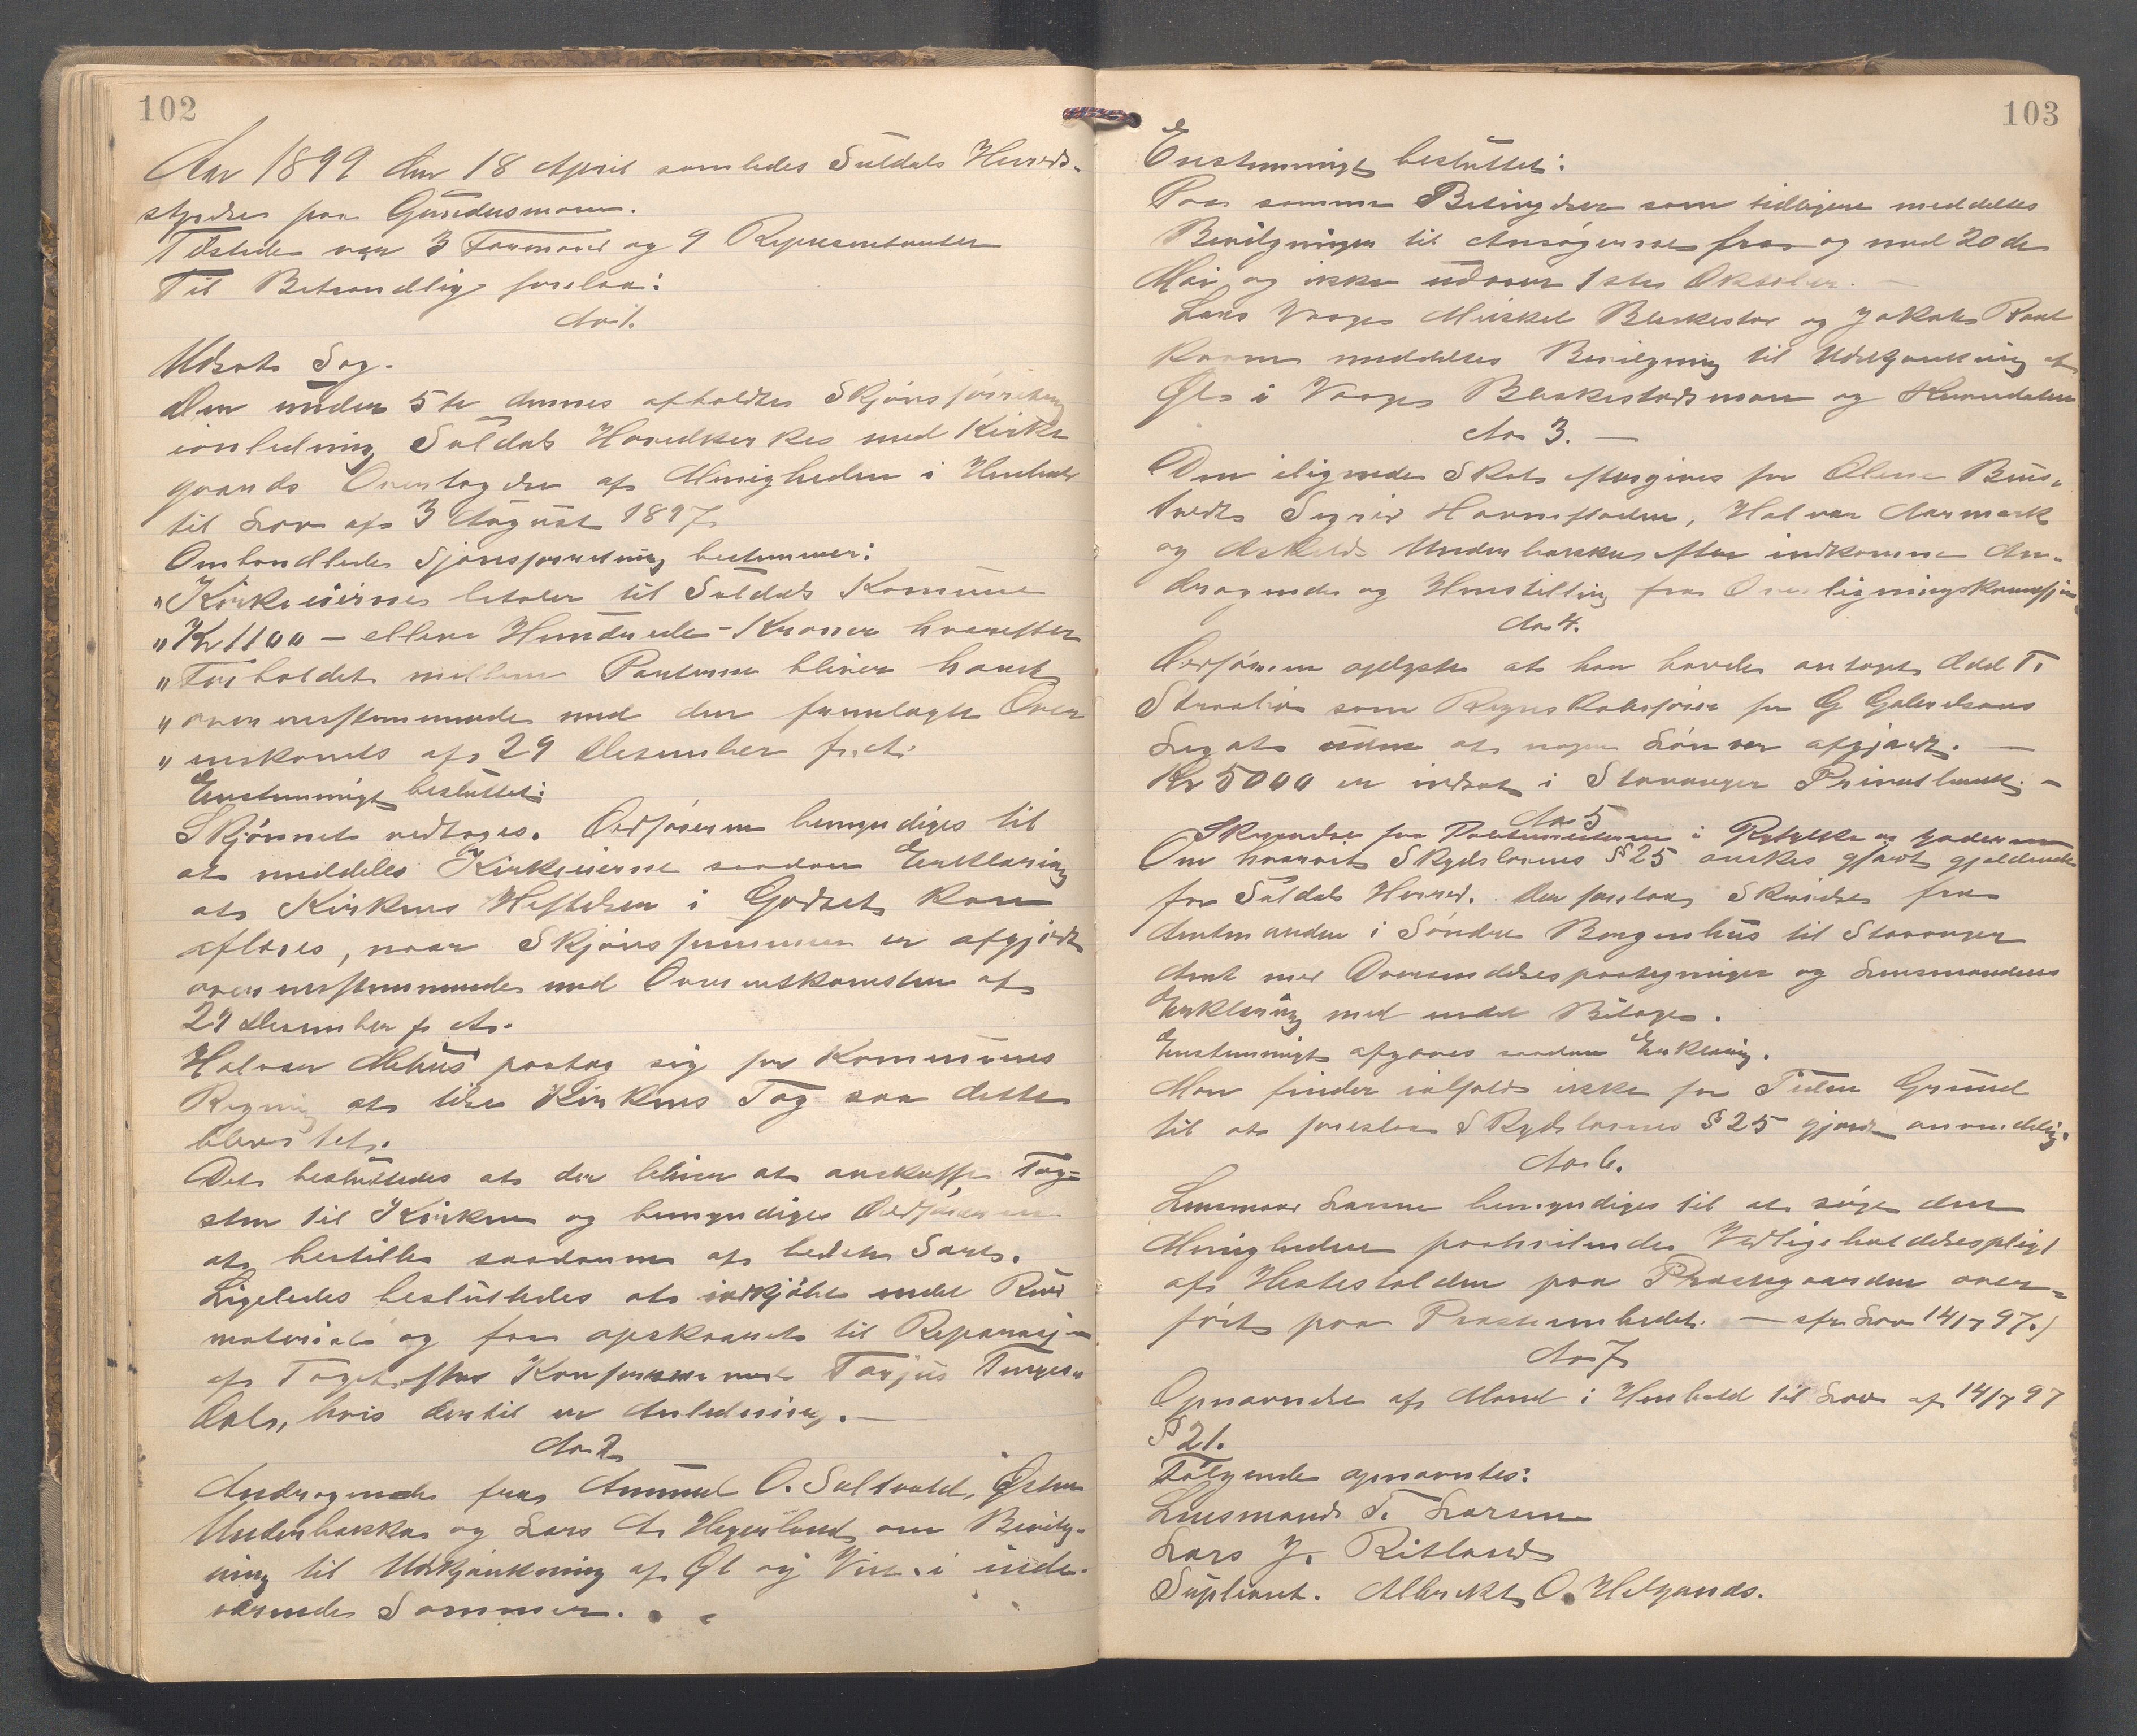 102
Aar 1899 den 18 April samledes Suldals Herreds-
styrelse paa Guridusmoen.
Tilstede var 3 Formænd og 9 Representanter
Til Behandling forelaa:
No 1.
Udsat Sag.
Den under 5te dennes afholdte Skjønsforretning
i anledning Suldals Hovedkirkes med Kirke
gaards Overtagelse af Menigheden i Henhold
til Lov af 3 August 1897.
Omhandlede Sjønsforretning bestemmer:
"Kirkeeierne betaler til Suldals Komune
"Kr 1100 – elleve Hundrede – Kroner hvorefter
"Forholdet mellem Parterne bliver havt
"overensstemmende med den fremlagte Over
"enskomst af 29 Desember f. A.
Enstemmigt besluttet:
Skjønnet vedtages. Ordføreren bemyndiges til
at meddele Kirkeeierne saadan Erklæring
at Kirkens Heftelser i Godset kan
aflæses, naar Skjønssummen er afgjordt
overensstemmende med Overenskomsten af
29 Desember f. A.
Halvor Mehus paatog sig for Kommunens
Regning at tese Kirkens Tag saa dette
blev tet.
Det besluttedes at der bliver at anskaffe Tag-
sten til Kirken og bemyndiges Ordføreren
at bestille saadanne af bedste Sort.
Ligeledes besluttedes at indkjøbe endel
materiale og faa opskaaret til Reparasjon
af Taget efter Konferanse med Tarjus
Dale, hvis dertil er Anledning. –
No 2
Andragende fra Ammund O. Saltvold, Østen
Underbakka og Lars A. Hegerland om Bevilg-
ning til Udskjænkning af Øl og Vin i inde-
værende Sommer.
103
Enstemmigt besluttet:
Paa samme Betingelser som tidligere meddeles
Bevilgningen til Ansøgerne fra og med 20de
Mai og ikke udover 1ste Oktober. –
Lars Vaage Mikkel Bleskestad og Jakob Roal
kvam meddeles Bevilgning til Udskjænkning af
Øl i Vaage Bleskestadsmoen og Kvandalen
No 3. –
Den ilignede Skat eftergives for Olene Bus-
tvedt Sigrid Havrestaden, Halvor Aarmark
og Askild Underbakka efter indkomne An-
dragende og Henstilling fra Overligningskommisjon
No 4.
Ordføreren oplyste at han havde antaget Odd T.
Straabø som Regnskabsfører for G Gabrielsens
Legat uden at nogen Løn var afgjordt. –
Kr 5000 er indsat i Stavanger Privatbank. –
No 5
Skrivelse fra Politimesteren i Ryfylke og Jæderen
Om hvorvidt Skydslovens § 25 ønskes gjort gjældende
for Suldals Herred. Der forelaa Skrivelse fra
Amtmanden i Søndre Bergenhus til Stavanger
Amt med Oversendelsespaategninger og Lensmandens
Erklæring med endel Bilage.
Enstemmigt afgaves saadan Erklæring.
Man finder ialfald ikke for Tiden Grund
til at foreslaa Skydslovens § 25 gjort anvendelig.
No 6.
Lensmand Larsen bemyndiges til at søge den
Menigheden paahvilende Vedligeholdelsespligt
af Hestestalden paa Præstegaarden over-
ført paa Præsteembedet. – cfr Lov 14/7 97.)
No 7
Opnævnelse af Mænd i Henhold til Lov af 14/7 97
§ 21.
Følgende opnævntes:
Lensmand T. Larsen
Lars J. Ritland
Supleant. Albrekt O. Helgenæs.